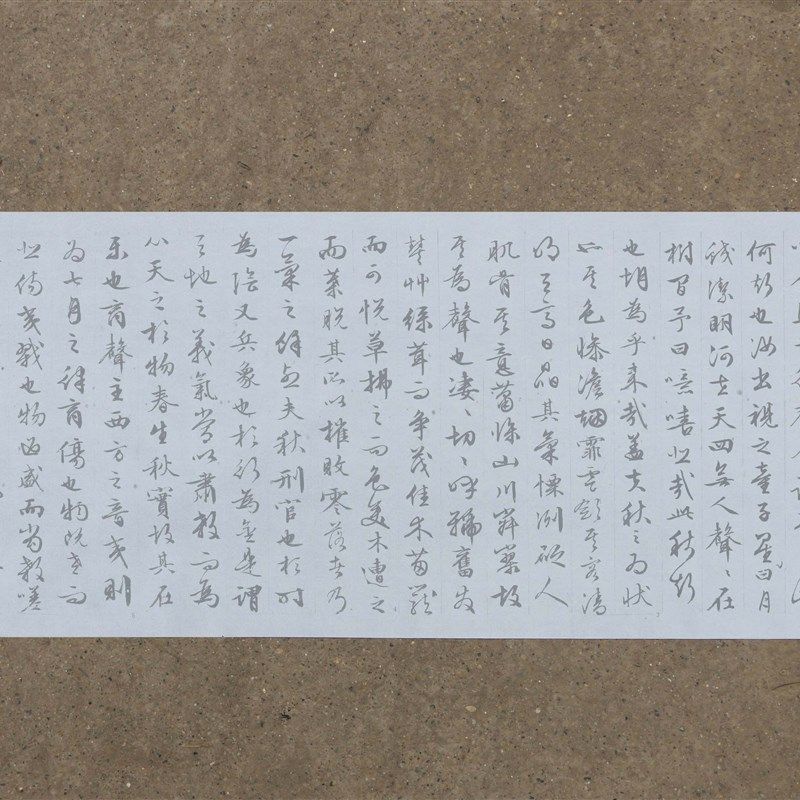 何聲也汝出視之童子曰星月
皎潔明河在天四無人聲聲在
樹間予曰噫嘻悲哉此秋聲
也胡為乎來哉蓋夫秋之為狀
也其色慘澹煙霏雲斂其容清
明天高日晶其氣慄冽砭人
肌骨其意蕭條山川寂寥故
其為聲也淒淒切切呼號奮發
豐艸綠茸而爭茂佳木蔥蘢
而可悅草拂之而色變木遭之
而葉脫其所以摧敗零落者乃
一氣之餘烈夫秋刑官也於時
為陰又兵象也於行為金是謂
天地之義氣常以肅殺而為
心天之於物春生秋實故其在
樂也商聲主西方之音夷則
為七月之律商傷也物既老而
悲傷夷戮也物過盛而當殺嗟